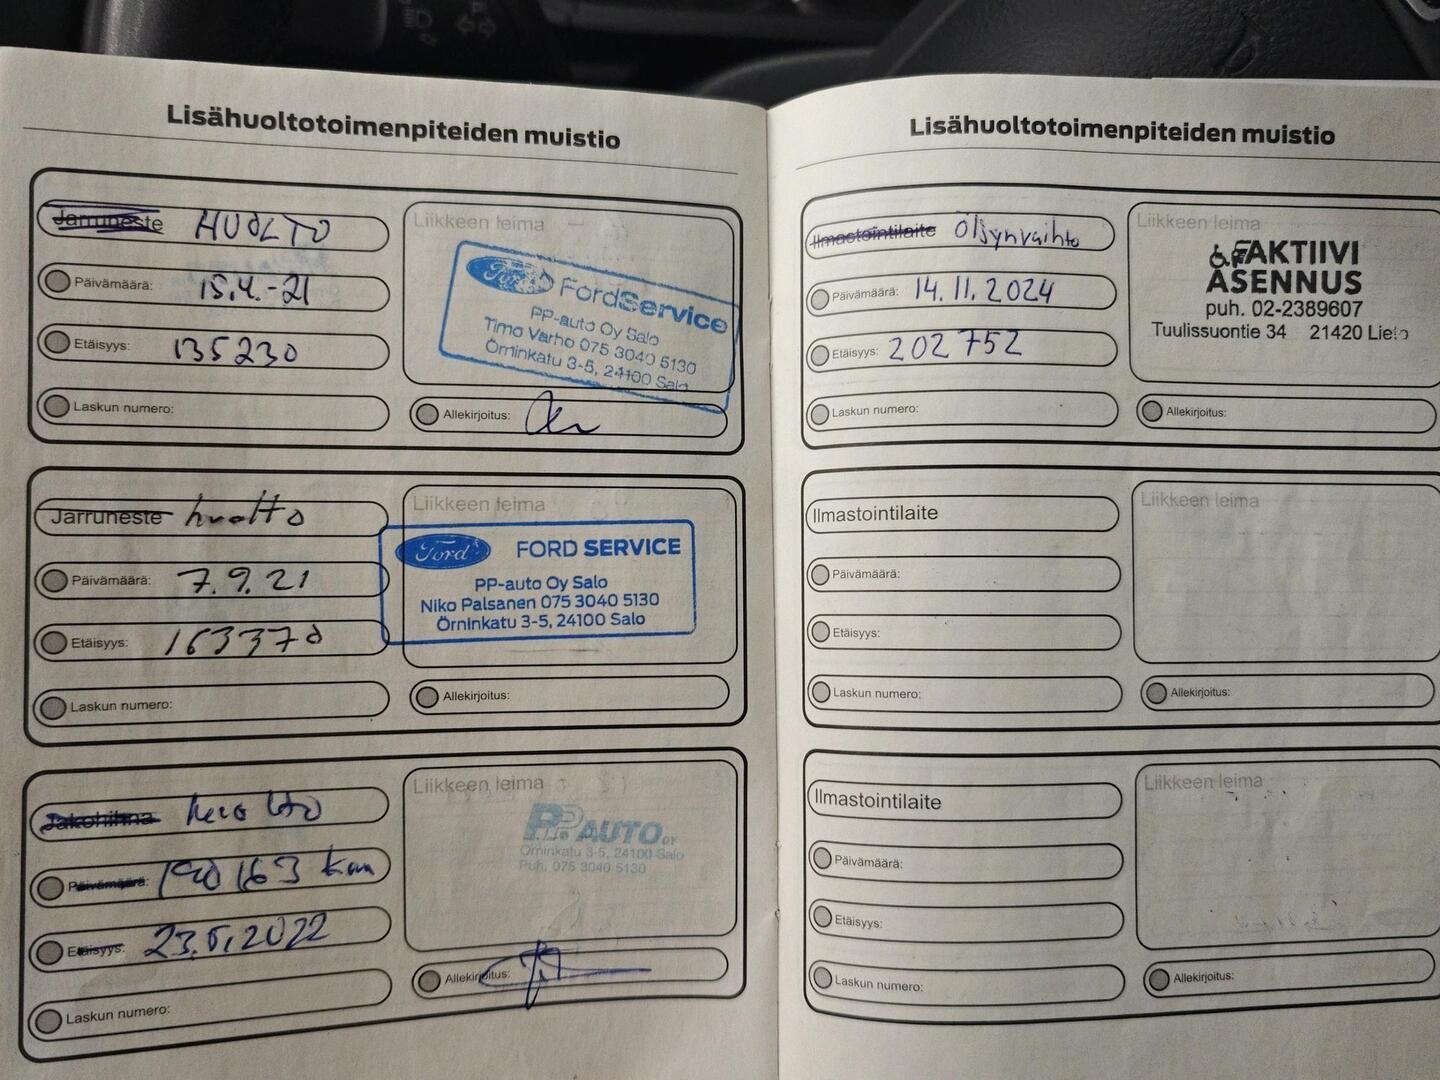 Lisähuoltotoimenpiteiden muistio
Jarruneste HUOLTO
Päivämäärä: 15.4.-21
Etäisyys: 135230
Laskun numero:
Liikkeen leima
Ford FordService
PP-auto Oy Salo
Timo Varho 075 3040 5130
Örninkatu 3-5, 24100 Salo
Allekirjoitus:
Jarruneste huolto
Päivämäärä: 7.9.21
Etäisyys: 163370
Laskun numero:
Liikkeen leima
Ford FORD SERVICE
PP-auto Oy Salo
Niko Palsanen 075 3040 5130
Örninkatu 3-5, 24100 Salo
Allekirjoitus:
Jakohihna huolto
Päivämäärä: 190 163 km
Etäisyys: 23.5.2022
Laskun numero:
Liikkeen leima
P.P. AUTO OY
Örninkatu 3-5, 24100 Salo
Puh. 075 3040 5130
Allekirjoitus:
Lisähuoltotoimenpiteiden muistio
Ilmastointilaite Öljynvaihto
Päivämäärä: 14.11.2024
Etäisyys: 202 752
Laskun numero:
Liikkeen leima
AKTIIVI
ASENNUS
puh. 02-2389607
Tuulissuontie 34 21420 Lieto
Allekirjoitus:
Ilmastointilaite
Päivämäärä:
Etäisyys:
Laskun numero:
Liikkeen leima
Allekirjoitus:
Ilmastointilaite
Päivämäärä:
Etäisyys:
Laskun numero:
Liikkeen leima
Allekirjoitus: